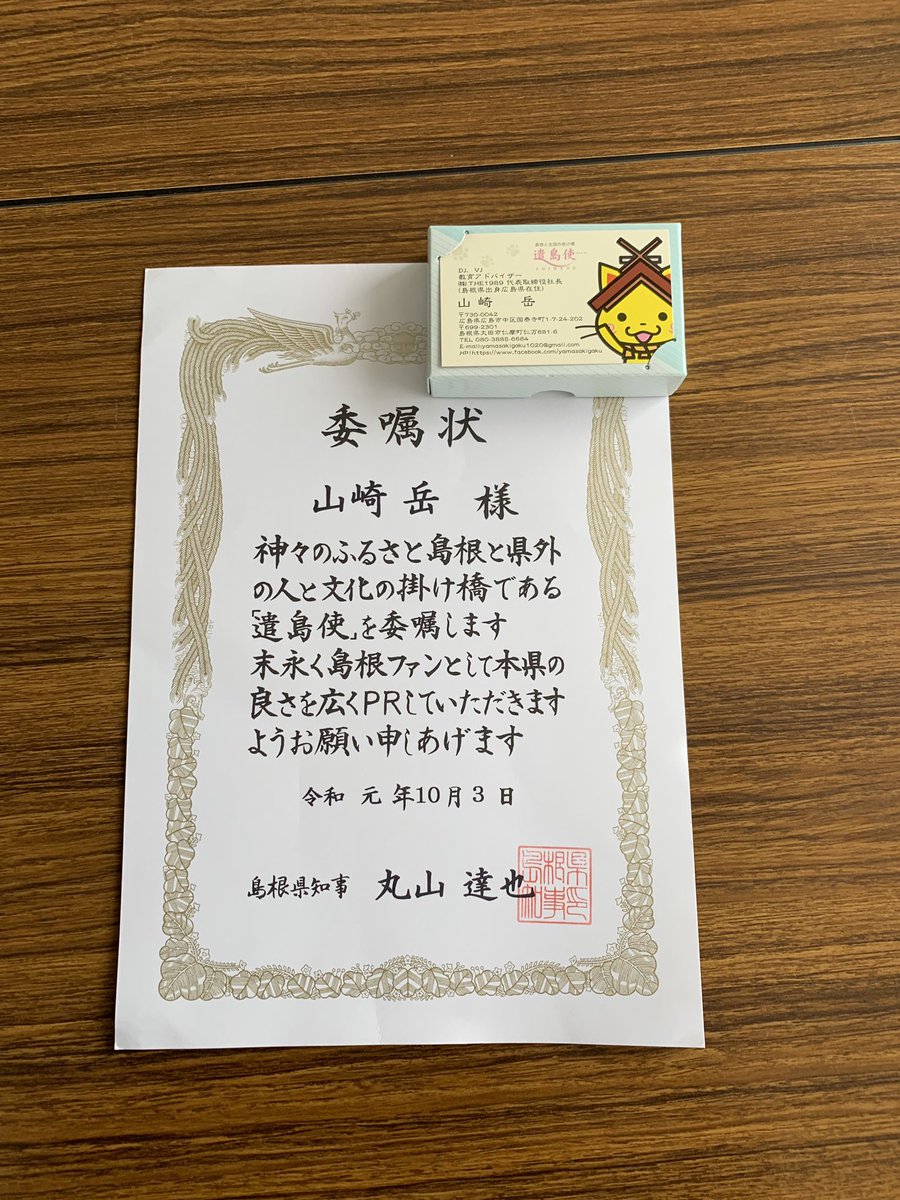 島根と全国の掛け橋
遣島使
SHIMANE
DJ、VJ
教育アドバイザー
㈱THE1989 代表取締役社長
(島根県出身広島県在住)
山崎 岳
〒730-0042
広島県広島市中区国泰寺町1-7-24-202
〒699-2301
島根県大田市仁摩町仁万681-6
TEL 080-3885-6684
E-mail:yamasakigaku1020@gmail.com
HP:https://www.facebook.com/yamasakigaku
委嘱状
山崎 岳 様
神々のふるさと島根と県外
の人と文化の掛け橋である
「遣島使」を委嘱します
末永く島根ファンとして本県の
良さを広くPRしていただきます
ようお願い申しあげます
令和 元 年10月3日
島根県知事 丸山 達也
島根県知事之印